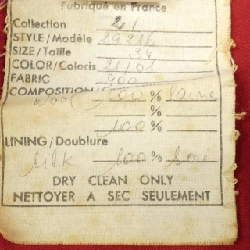 Fabriqué en France
Collection 21
STYLE/Modèle
SIZE/Taille 34
COLOR/Coloris
FABRIC
COMPOSITION
Wool 100% Laine
%
100%
LINING/Doublure
Silk 100% Soie
DRY CLEAN ONLY
NETTOYER A SEC SEULEMENT